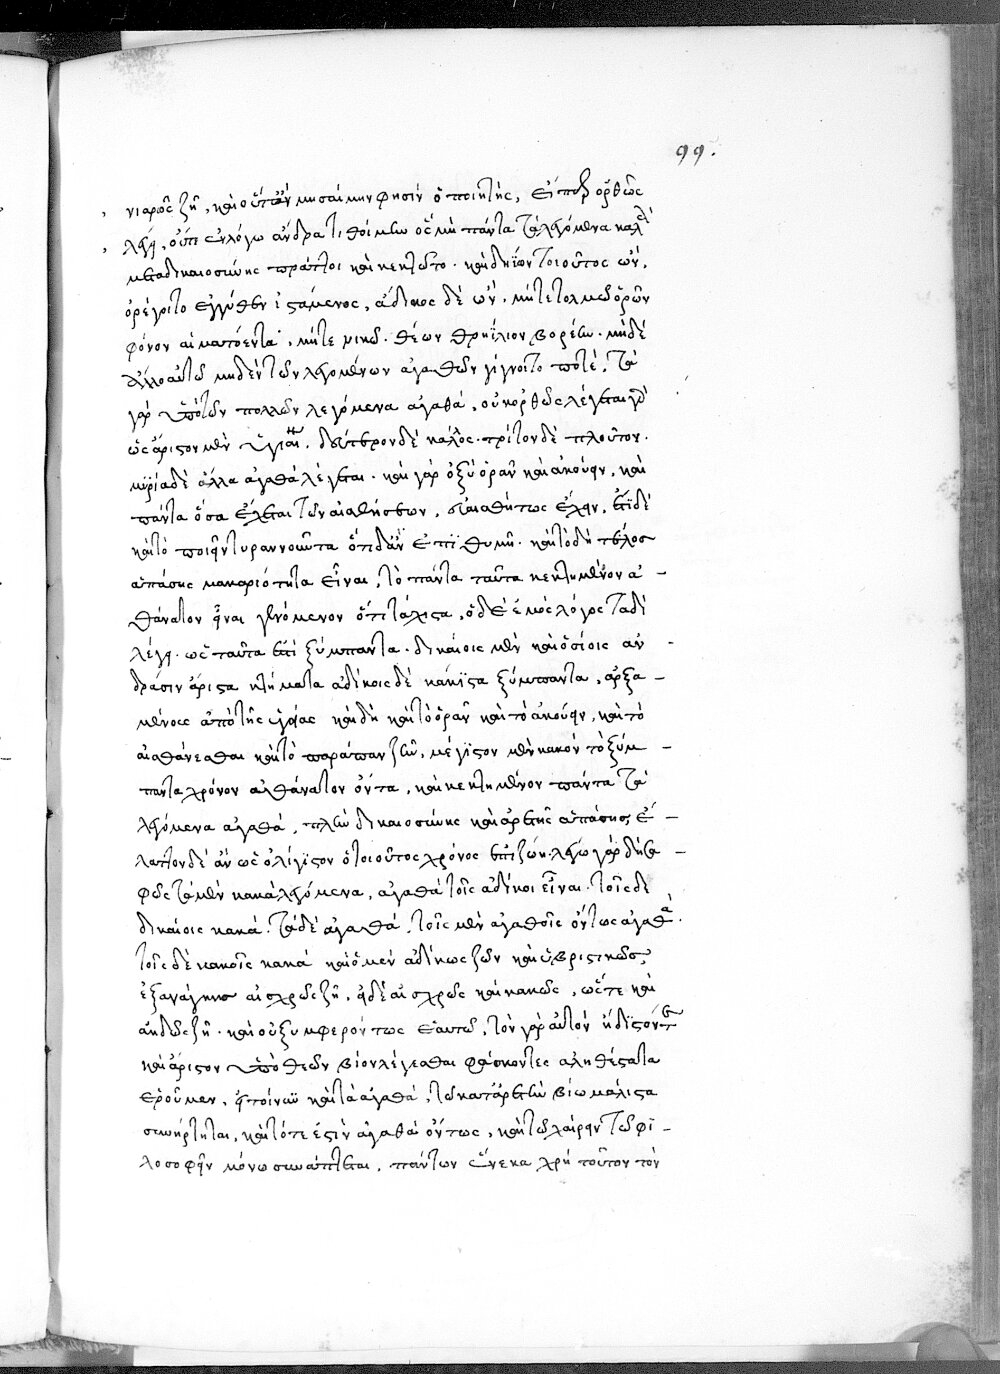 99.
νιαρῶς ζῆ, καὶ οὔτ' ἂν μνησαίμην φησὶν ὁ ποιητής, εἴπερ ὀρθῶς
λέγει, οὔτ' ἐν λόγω ἄνδρα τιθοίμην ὃς μὴ πάντα τὰ λεγόμενα καλὰ
μετὰ δικαιοσύνης πράττοι καὶ κεκτῶτο. καὶ δηΐων τοιοῦτος ὢν,
ὀρέγοιτο ἐγγύθεν ἱστάμενος, ἄδικος δὲ ὢν. μήτε τολμῶ ὁρῶν
φόνον αἱματόεντα, μήτε νικῶ. θέων θρηΐκιον βορέην. μηδὲ
ἄλλο αὐτῶ μηδὲν τῶν λεγομένων ἀγαθῶν γίγνοιτο ποτέ. τὰ
γὰρ ὑπὸ τῶν πολλῶν λεγόμενα ἀγαθὰ, οὐκ ὀρθῶς λέγεται γὰρ
ὡς ἄριστον μὲν ὑγιαίνειν, δεύτερον δὲ κάλλος. τρίτον δὲ πλοῦτον.
μυρία δὲ ἄλλα ἀγαθὰ λέγεται. καὶ γὰρ ὀξὺ ὁρᾶν καὶ ἀκούειν, καὶ
πάντα ὅσα ἔχεται τῶν αἰσθήσεων, εὐαισθήτως ἔχειν, ἔτι δὲ
καὶ τὸ ποιεῖν τυραννοῦντα ὅτι δἂν ἐπιθυμῆ. καὶ τὸ δὴ τέλος
ἁπάσης μακαριότητα εἶναι, τὸ πάντα ταῦτα κεκτημένον ἀ-
θάνατον εἶναι γενόμενον ὅτι τάχιστα, ὁ δὲ ἐμὸς λόγος ταδὶ
λέγει. ὡς ταῦτα ἐστὶ ξύμπαντα. δικαίοις μὲν καὶ ὁσίοις ἀν-
δράσιν ἄριστα κτήματα ἀδίκοις δὲ κάκιστα ξύμπαντα, ἀρξα-
μένους ἀπὸ τῆς ὑγιείας καὶ δὴ καὶ τὸ ὁρᾶν καὶ τὸ ἀκούειν, καὶ τὸ
αἰσθάνεσθαι καὶ τὸ παράπαν ζῆν, μέγιστον μὲν κακὸν τὸ ξύμ-
παντα χρόνον ἀθάνατον ὄντα, καὶ κεκτημένον πάντα τὰ
λεγόμενα ἀγαθὰ, πλὴν δικαιοσύνης καὶ ἀρετῆς ἁπάσης, ἔ-
λαττον δὲ ἂν ὡς ὀλίγιστον ὁ τοιοῦτος χρόνος ἐπιζώη. λέγω γὰρ δὴ σα-
φῶς τὰ μὲν κακὰ λεγόμενα, ἀγαθὰ τοῖς ἀδίκοι εἶναι. τοῖς δὲ
δικαίοις κακά. τὰ δὲ ἀγαθὰ, τοῖς μὲν ἀγαθοῖς ὄντως ἀγαθά.
τοῖς δὲ κακοῖς κακά καὶ ὁ μὲν ἀδίκως ζῶν καὶ ὑβριστικῶς,
ἐξανάγκης αἰσχρῶς ζῆ, εἰ δὲ αἰσχρῶς καὶ κακῶς, ὥστε καὶ
ἀηδῶς ζῆ. καὶ οὐ ξυμφερόντως ἑαυτῶ, τὸν γὰρ αὐτὸν ἥδιστόν τε
καὶ ἄριστον ὑπὸ θεῶν βίον λέγεσθαι φάσκοντες ἀληθέστατα
ἐροῦμεν, εἰ τοίνυν καὶ τὰ ἀγαθὰ, τῶ κατ' ἀρετὴν βίω μάλιστα
συνήρτηται, καὶ τότε ἐστὶν ἀγαθὰ ὄντως, καὶ τῶ χαίρειν τῶ φι-
λοσοφεῖν μόνω συνάπτεται, πάντων ἕνεκα χρὴ τοῦτον τὸν